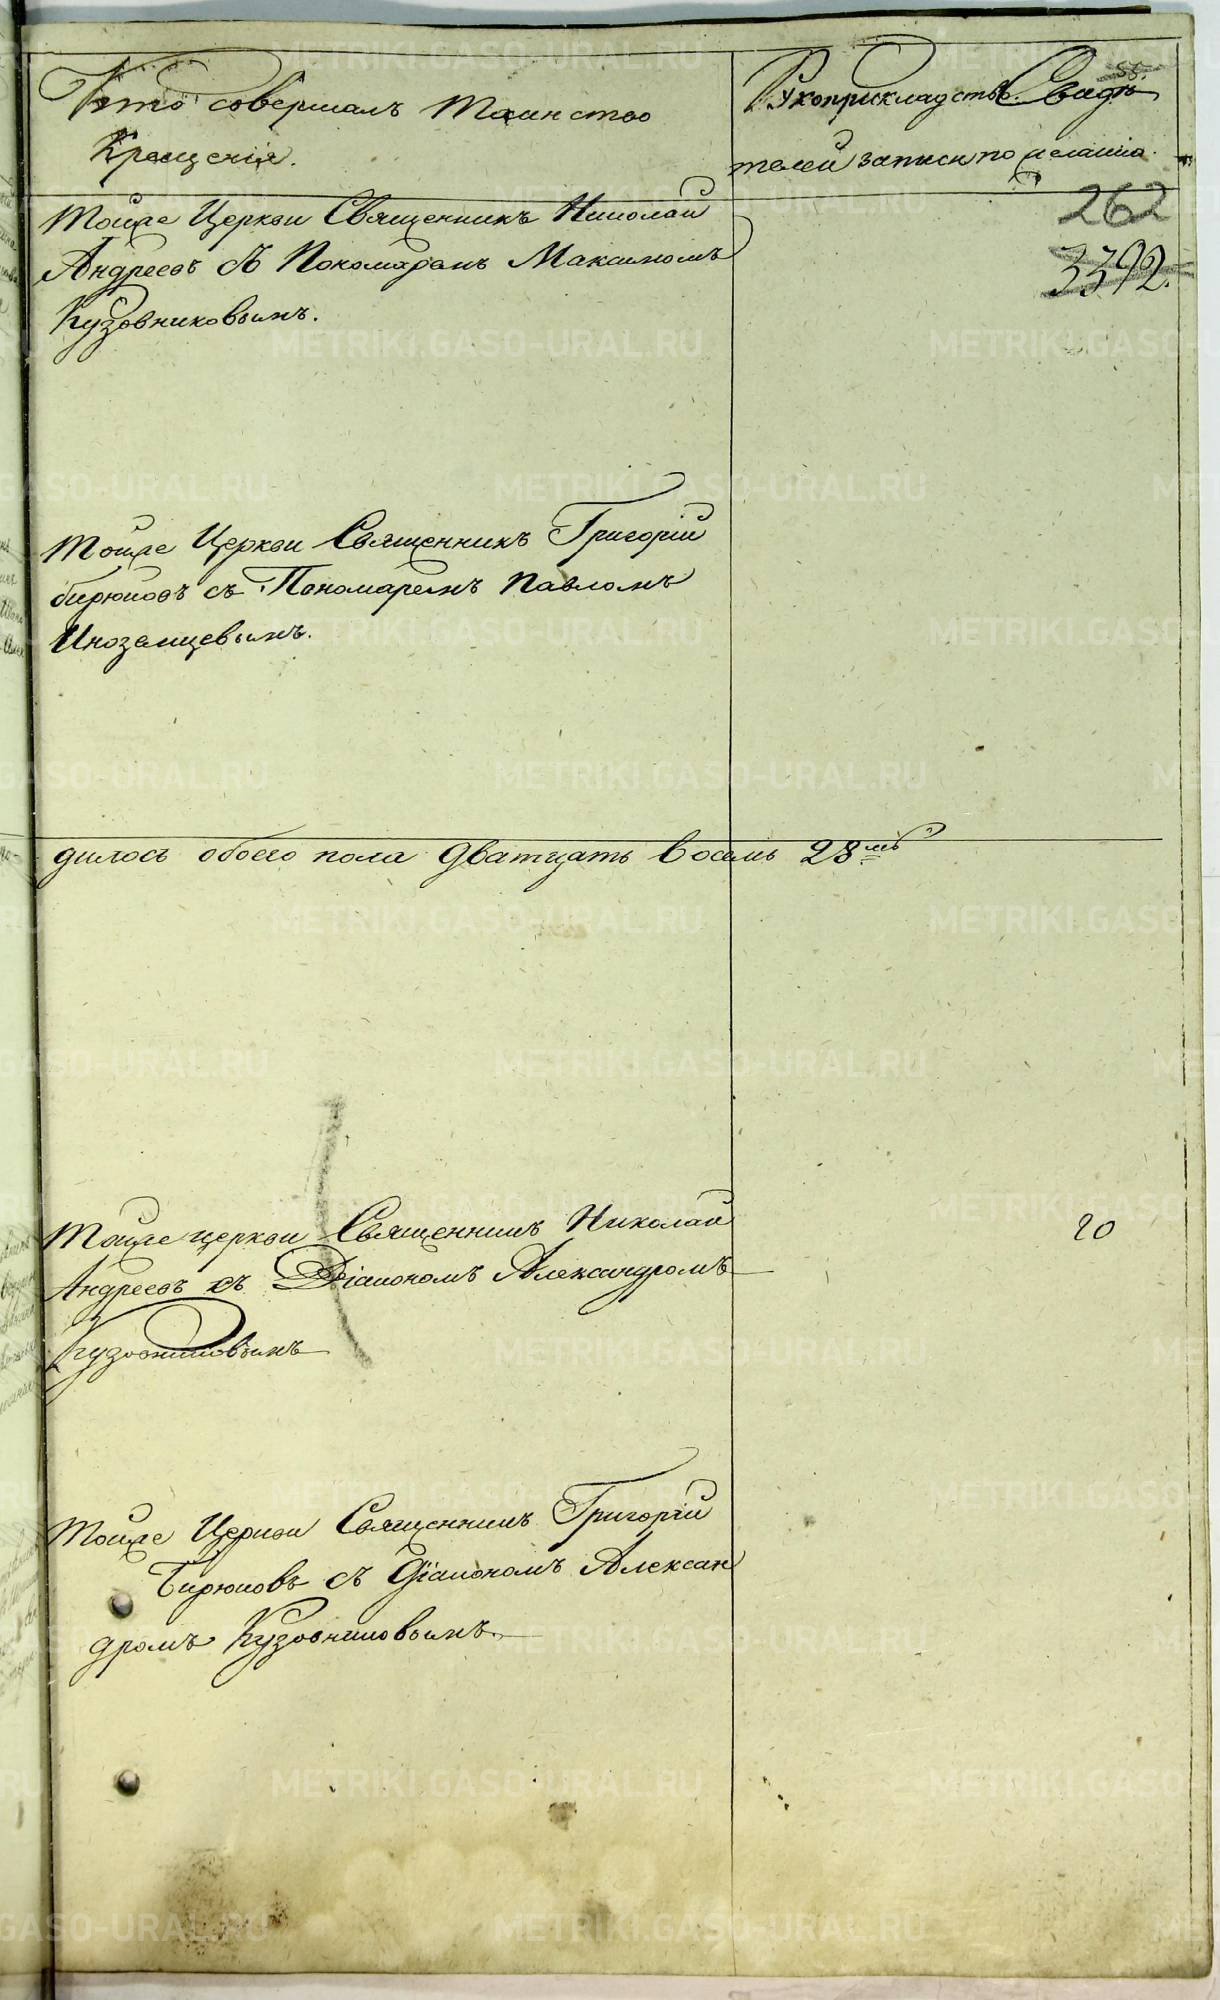 Кто совершалъ таинство
Крещенія.
Рукоприкладство Свидѣ
телей записи по желанію.
55.
262
3392.
Тойже Церкви Священникъ Николай
Андреевъ съ Пономаремъ Максимомъ
Кузовниковымъ.
Тойже Церкви Священникъ Григорій
Бирюковъ съ Пономаремъ Павломъ
Иноземцевымъ.
дилось обоего пола дватцать восемь 28мь
Тойже церкви Священникъ Николай
Андреевъ съ Діакономъ Александромъ
Кузовниковымъ
20
Тойже Церкви Священникъ Григорій
Бирюковъ съ Діакономъ Алексан
дромъ Кузовниковымъ.
METRIKI.GASO-URAL.RU